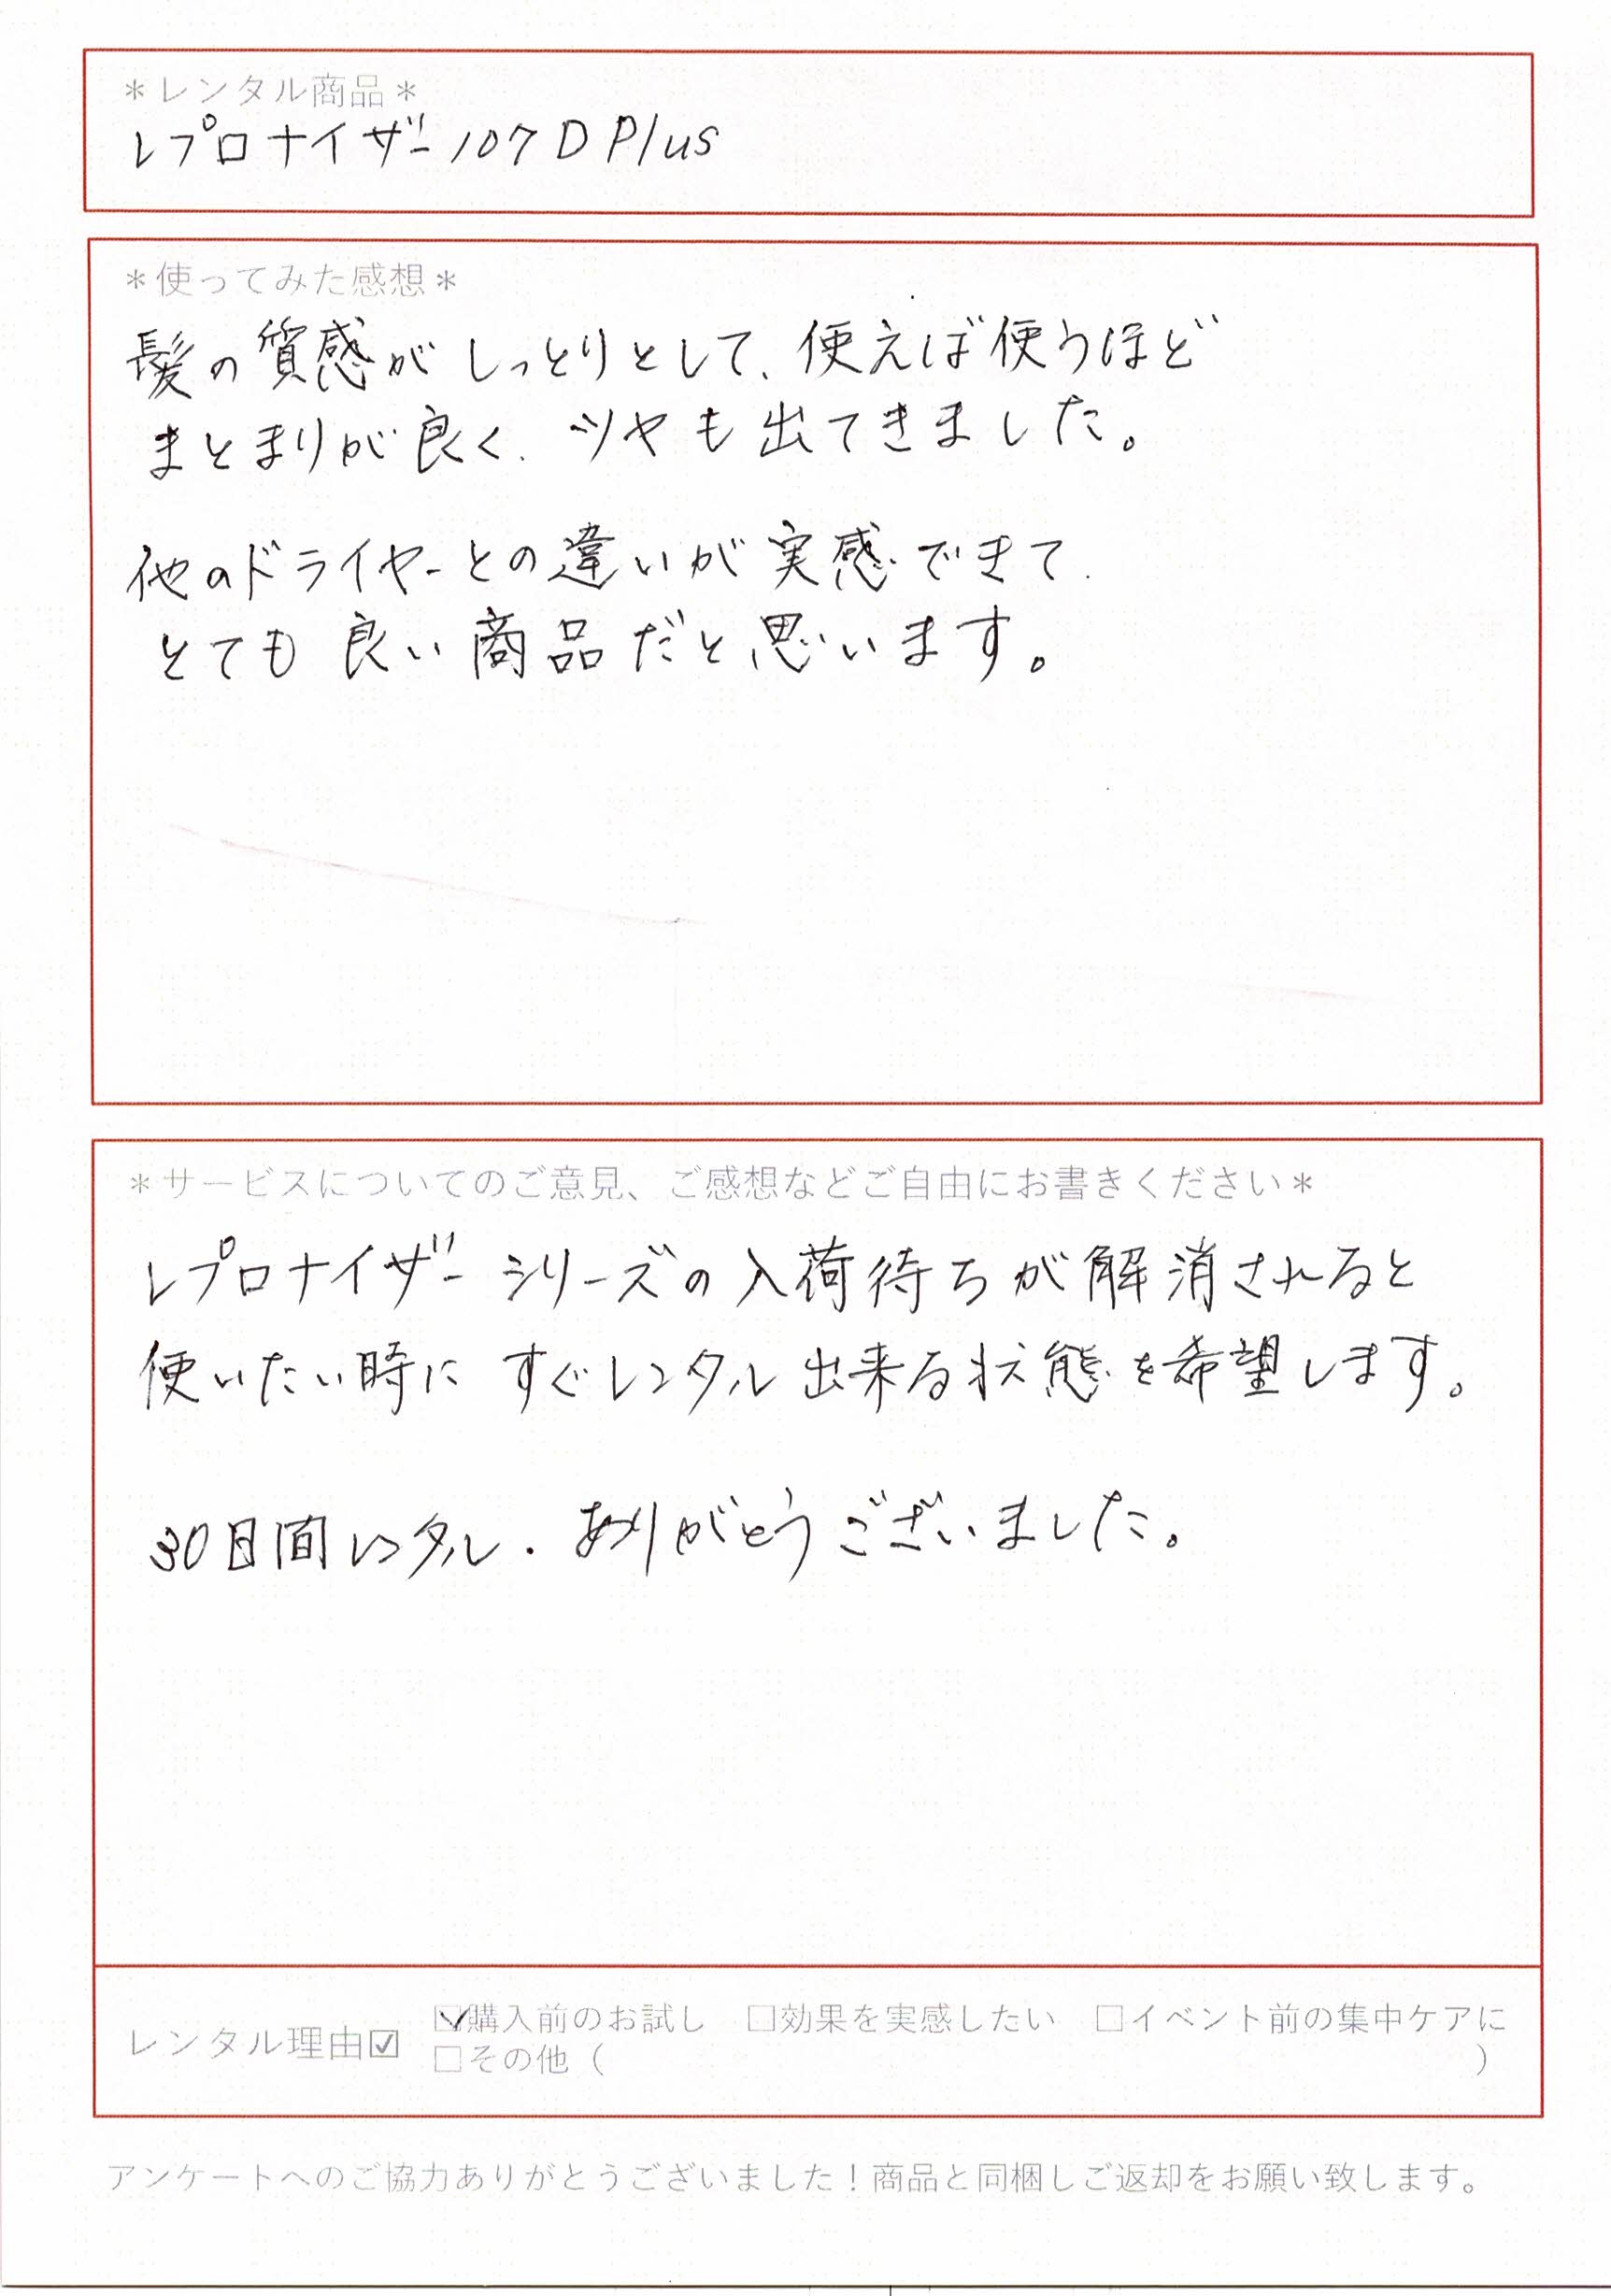 *レンタル商品*
レプロナイザー 107D Plus
*使ってみた感想*
髪の質感がしっとりとして、使えば使うほど
まとまりが良く、ツヤも出てきました。
他のドライヤーとの違いが実感できて、
とても良い商品だと思います。
*サービスについてのご意見、ご感想などご自由にお書きください*
レプロナイザーシリーズの入荷待ちが解消されると
使いたい時にすぐレンタル出来る状態を希望します。
30日間レンタル.ありがとうございました。
レンタル理由☑ ☑購入前のお試し □効果を実感したい □イベント前の集中ケアに
□その他( )
アンケートへのご協力ありがとうございました!商品と同梱しご返却をお願い致します。